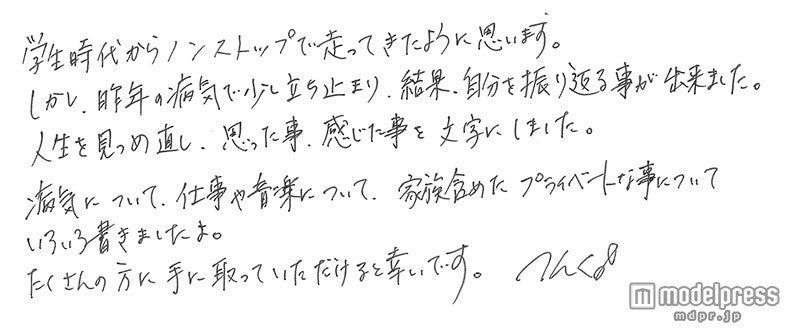 学生時代からノンストップで走ってきたように思います。
しかし、昨年の病気で少し立ち止まり、結果、自分を振り返る事が出来ました。
人生を見つめ直し、思った事、感じた事を文字にしました。
病気について、仕事や音楽について、家族含めたプライベートな事について
いろいろ書きましたよ。
たくさんの方に手に取っていただけると幸いです。 つんく♂
modelpress
mdpr.jp